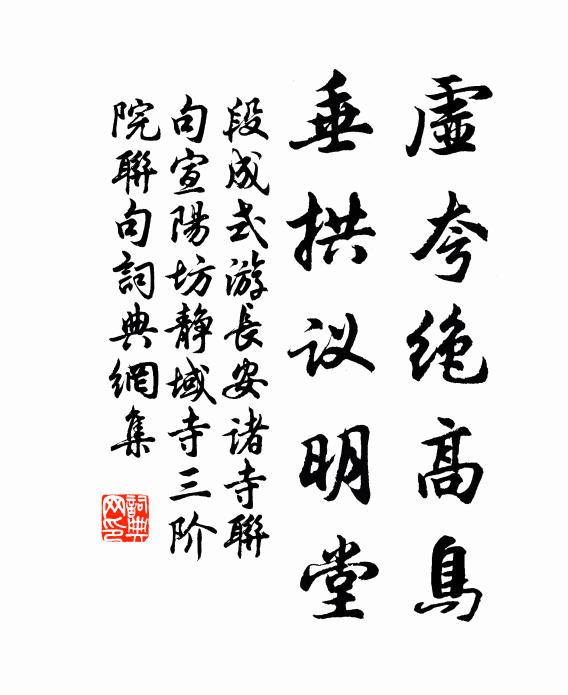 虚夸绝高鳥
垂拱议明堂
段成式游長安诸寺聯
句宣陽坊静域寺三阶
院聯句詞典網集
詞典
网印